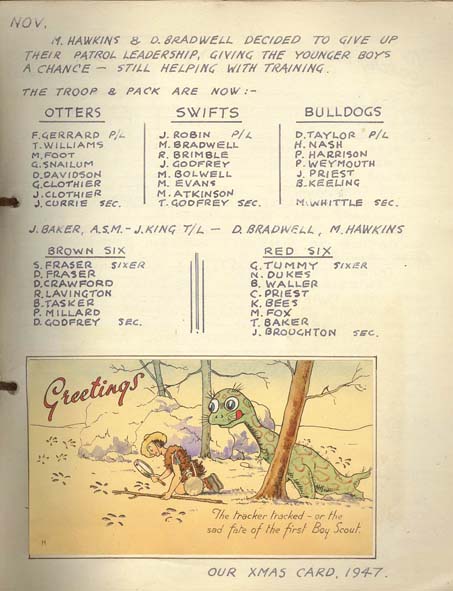 NOV.
M. HAWKINS & D. BRADWELL DECIDED TO GIVE UP
THEIR PATROL LEADERSHIP, GIVING THE YOUNGER BOYS
A CHANCE — STILL HELPING WITH TRAINING.
THE TROOP & PACK ARE NOW:-
OTTERS
F. GERRARD P/L
T. WILLIAMS
M. FOOT
G. SNAILUM
D. DAVIDSON
G. CLOTHIER
J. CLOTHIER
J. CURRIE SEC.
SWIFTS
J. ROBIN P/L
M. BRADWELL
R. BRIMBLE
J. GODFREY
M. BOLWELL
M. EVANS
M. ATKINSON
T. GODFREY SEC.
BULLDOGS
D. TAYLOR P/L
H. NASH
P. HARRISON
P. WEYMOUTH
J. PRIEST
B. KEELING
M. WHITTLE SEC.
J. BAKER, A.S.M.- J. KING T/L — D. BRADWELL, M. HAWKINS
BROWN SIX
S. FRASER SIXER
D. FRASER
D. CRAWFORD
R. LAVINGTON
B. TASKER
P. MILLARD
D. GODFREY SEC.
RED SIX
G. TUMMY SIXER
N. DUKES
B. WALLER
C. PRIEST
K. BEES
M. FOX
T. BAKER
J. BROUGHTON SEC.
Greetings
The tracker tracked - or the
sad fate of the first Boy Scout.
OUR XMAS CARD, 1947.